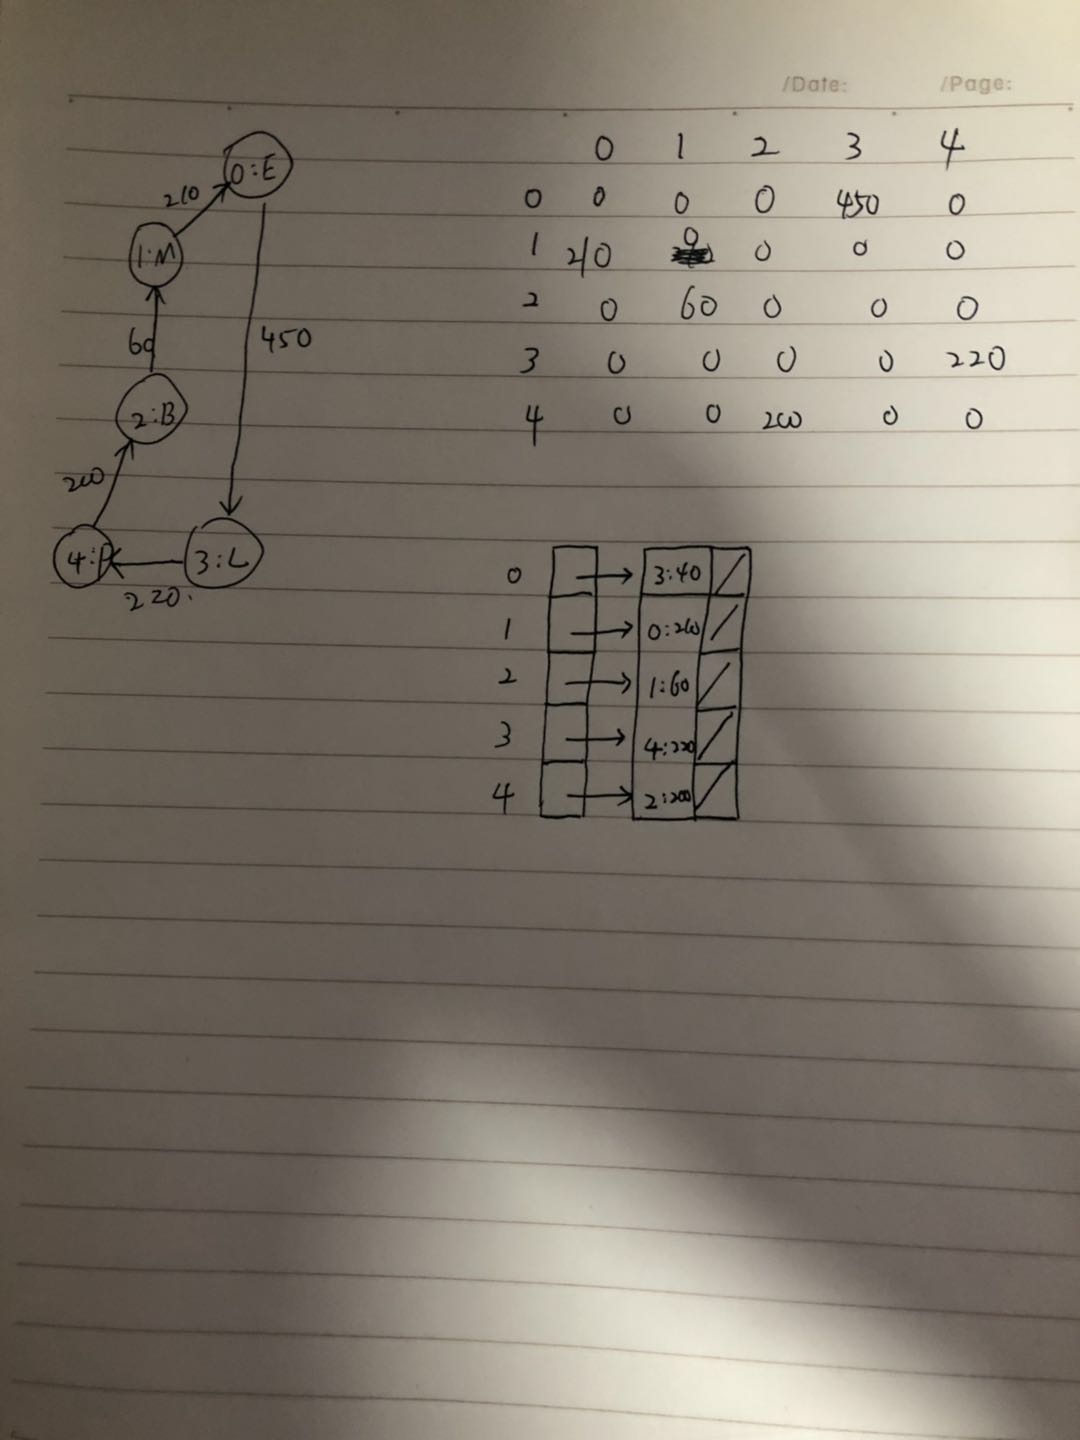 /Date: /Page:
0:E
210
1:M
60
450
2:B
200
4:P
3:L
220.
0 1 2 3 4
0 0 0 0 450 0
1 210 0 0 0 0
2 0 60 0 0 0
3 0 0 0 0 220
4 0 0 200 0 0
0 3:40
1
2 1:60
3 4:220
4 2:200